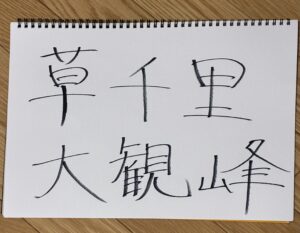 草千里
大観峰